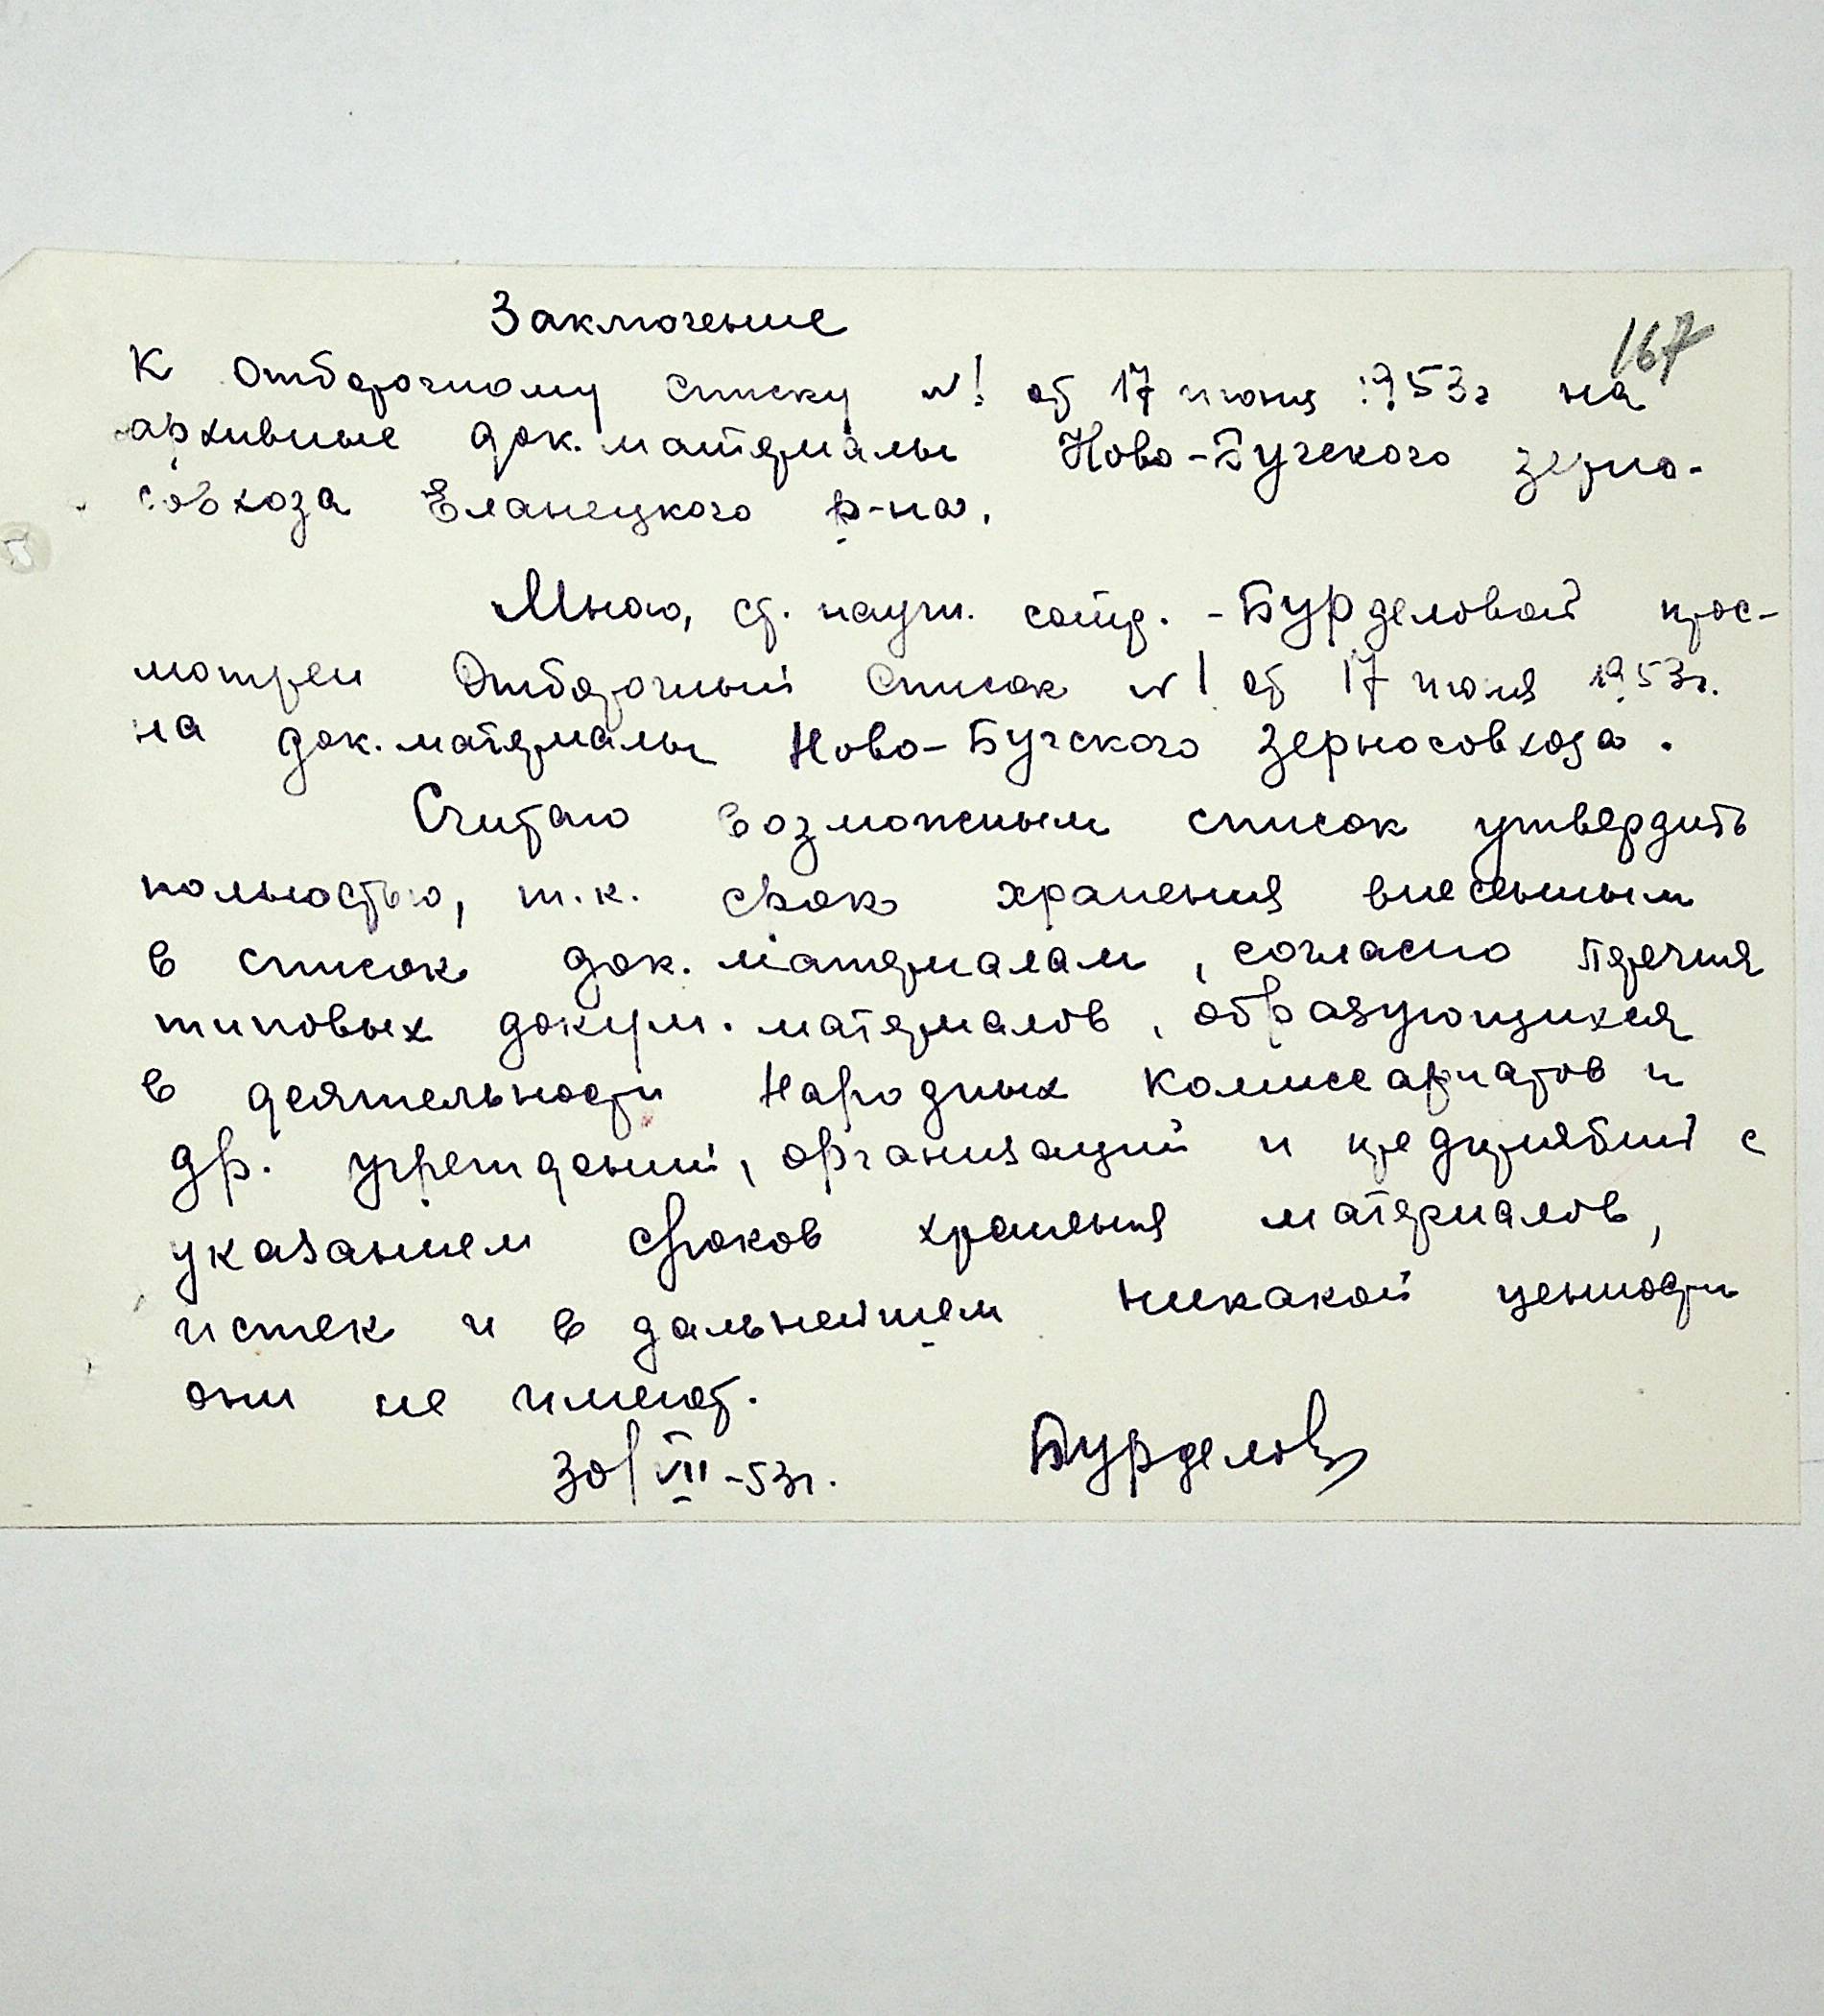 Заключение
167
К Отборочному списку №1 от 17 июня 1953г на
архивные док. материалы Ново-Бугского зерно-
совхоза Еланецкого р-на.
Мною, ст. научн. сотр. - Бурделовой прос-
мотрен Отборочный список №1 от 17 июля 1953г.
на док. материалы Ново-Бугского зерносовхоза.
Считаю возможным список утвердить
полностью, т.к. срок хранения внесенным
в список док. материалам, согласно Перечня
типовых докум. материалов, образующихся
в деятельности Народных комиссариатов и
др. учреждений, организаций и предприятий с
указанием сроков хранения материалов,
истек и в дальнейшем никакой ценности
они не имеют.
30/VII-53г. Бурделова